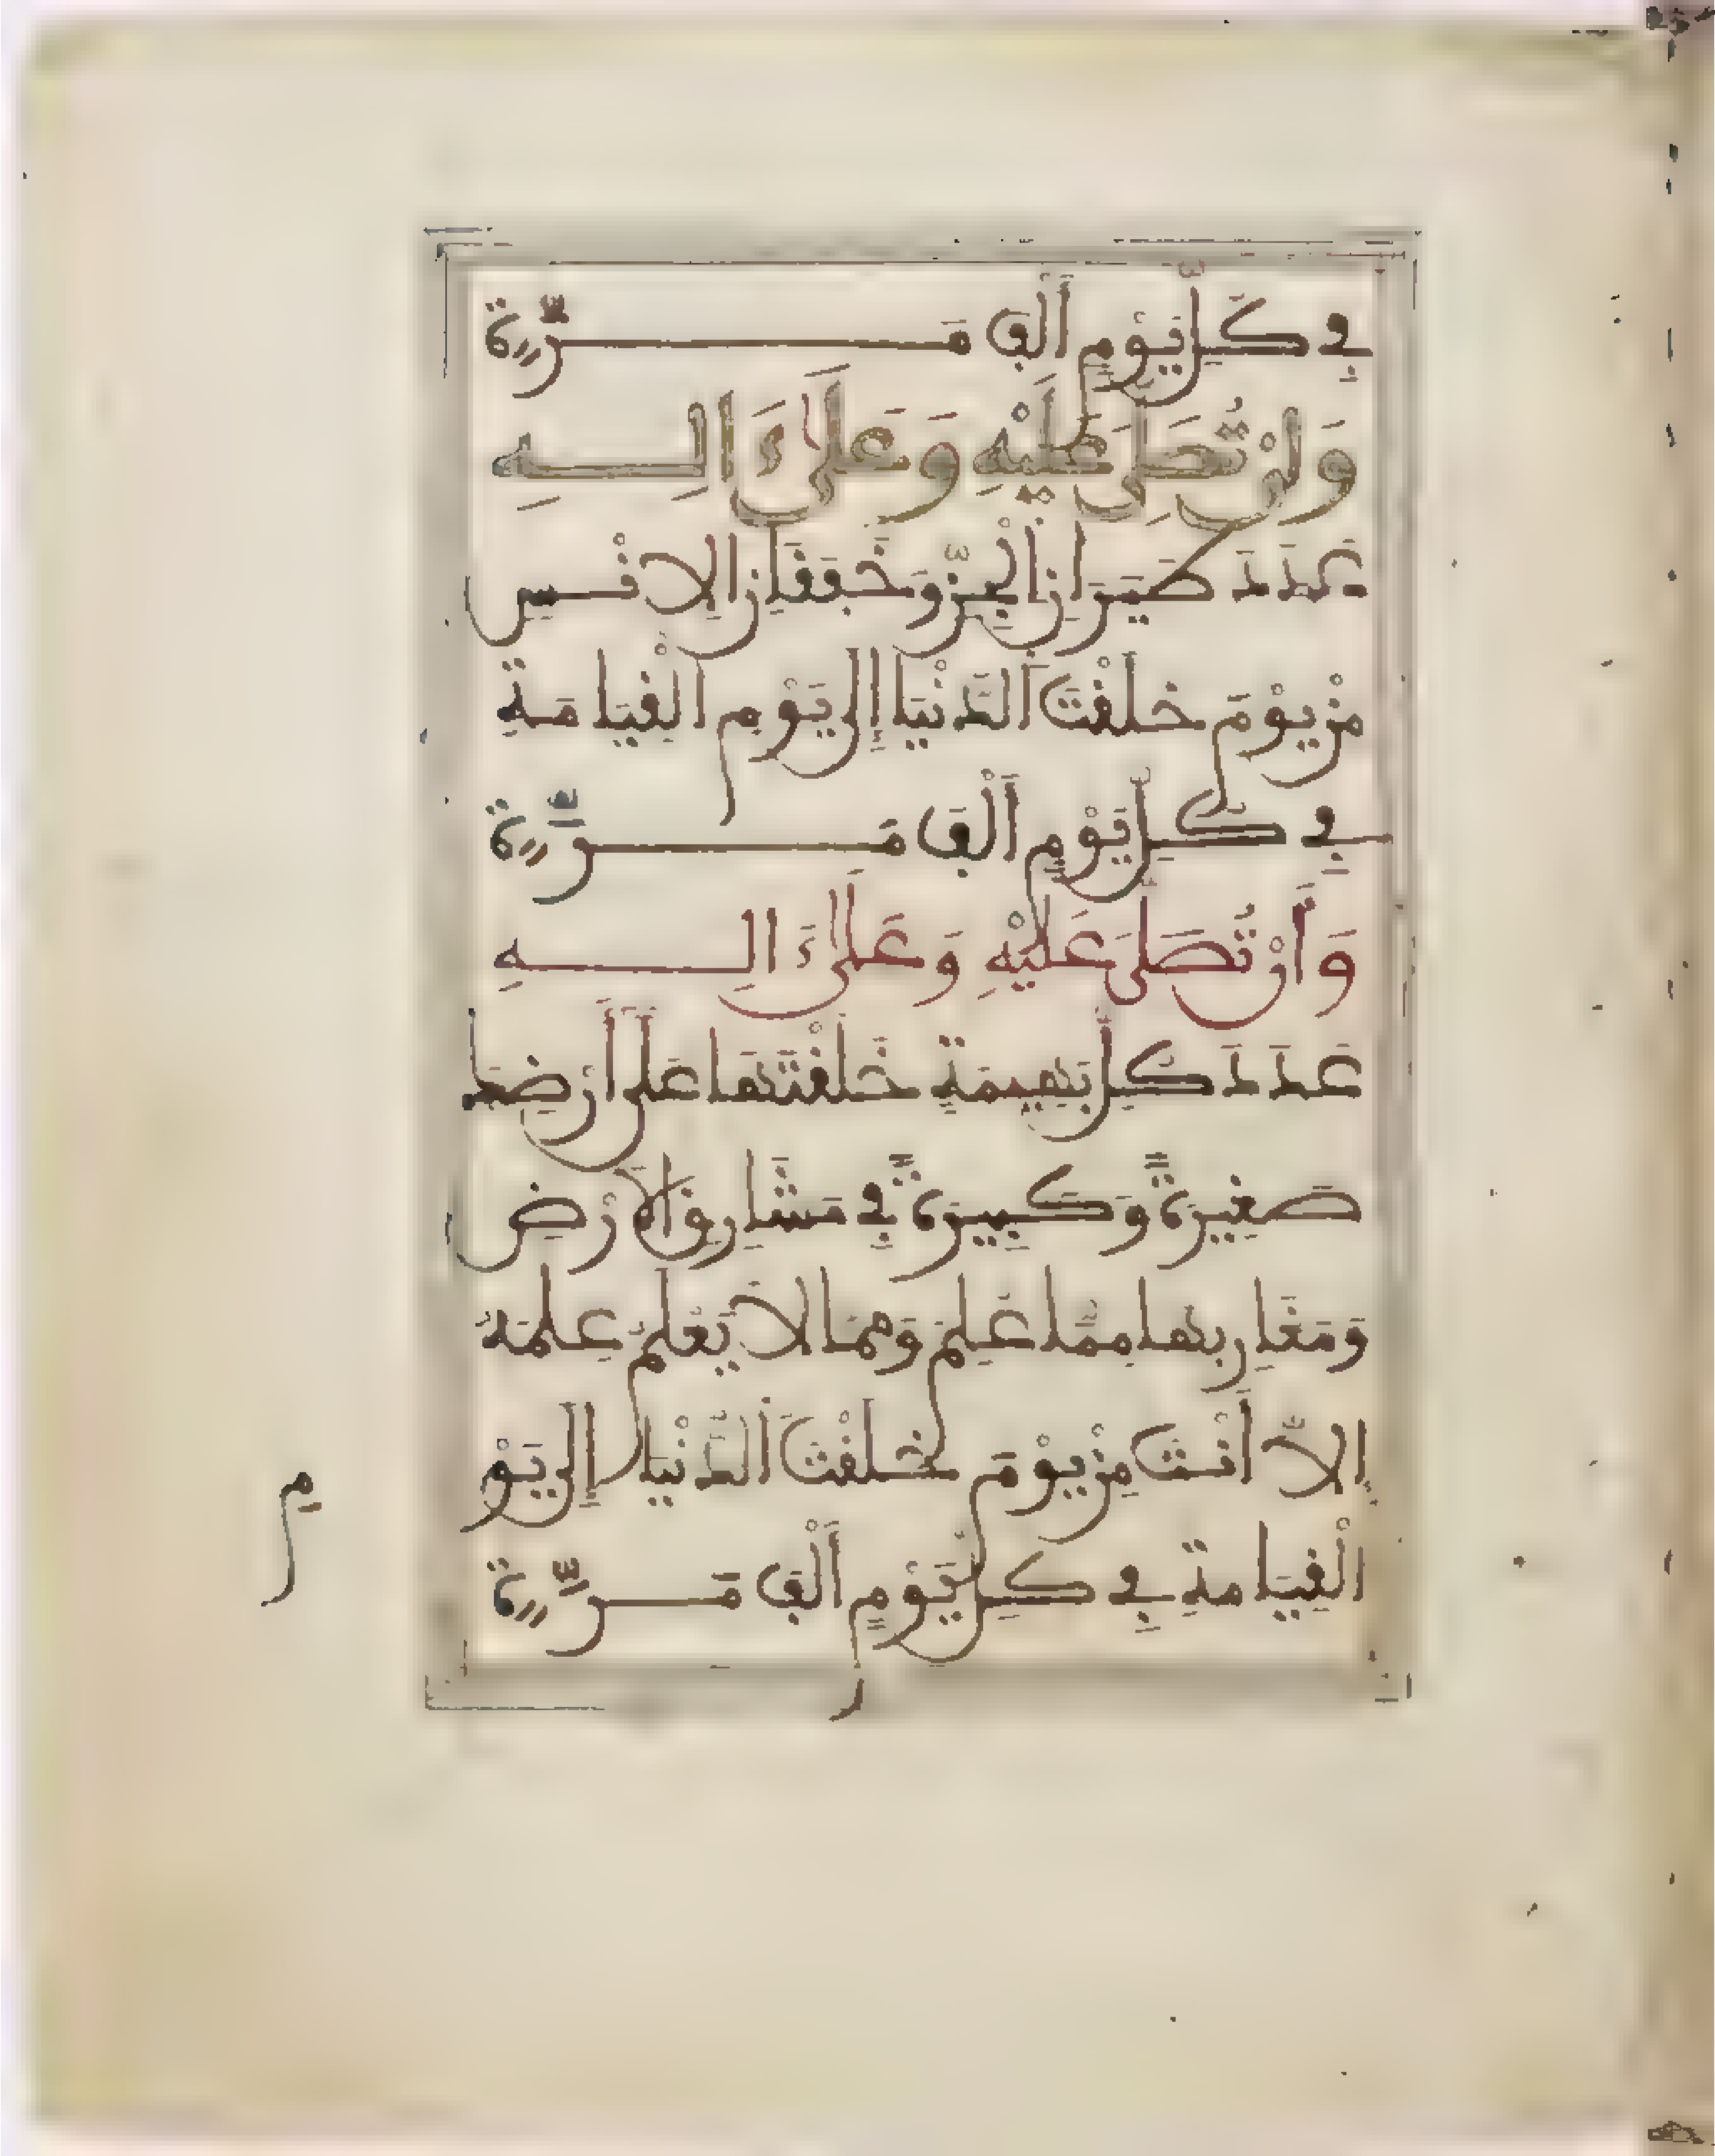 في كلّ يَوْمٍ أَلْفَ مَرَّةٍ
وَأَنْ تُصَلِّيَ عَلَيْهِ وَعَلَىٰ ءَالِهِ
عَدَدَ طَيَرَانِ الْجِنِّ وَخَفَقَانِ الْإِنْسِ
مِنْ يَوْمَ خَلَقْتَ الدُّنْيَا إِلَى يَوْمِ الْقِيَامَةِ
فِي كُلِّ يَوْمٍ أَلْفَ مَرَّةٍ
وَأَنْ تُصَلِّيَ عَلَيْهِ وَعَلَىٰ ءَالِهِ
عَدَدَ كُلِّ بَهِيمَةٍ خَلَقْتَهَا عَلَى أَرْضِكَ
صَغِيرَةً وَكَبِيرَةً فِي مَشَارِقِ الْأَرْضِ
وَمَغَارِبِهَا مِمَّا عُلِمَ وَمِمَّا لَا يَعْلَمُ عِلْمَهُ
إِلَّا أَنْتَ مِنْ يَوْمَ خَلَقْتَ الدُّنْيَا إِلَى يَوْ
م
الْقِيَامَةِ فِي كُلِّ يَوْمٍ أَلْفَ مَرَّةٍ